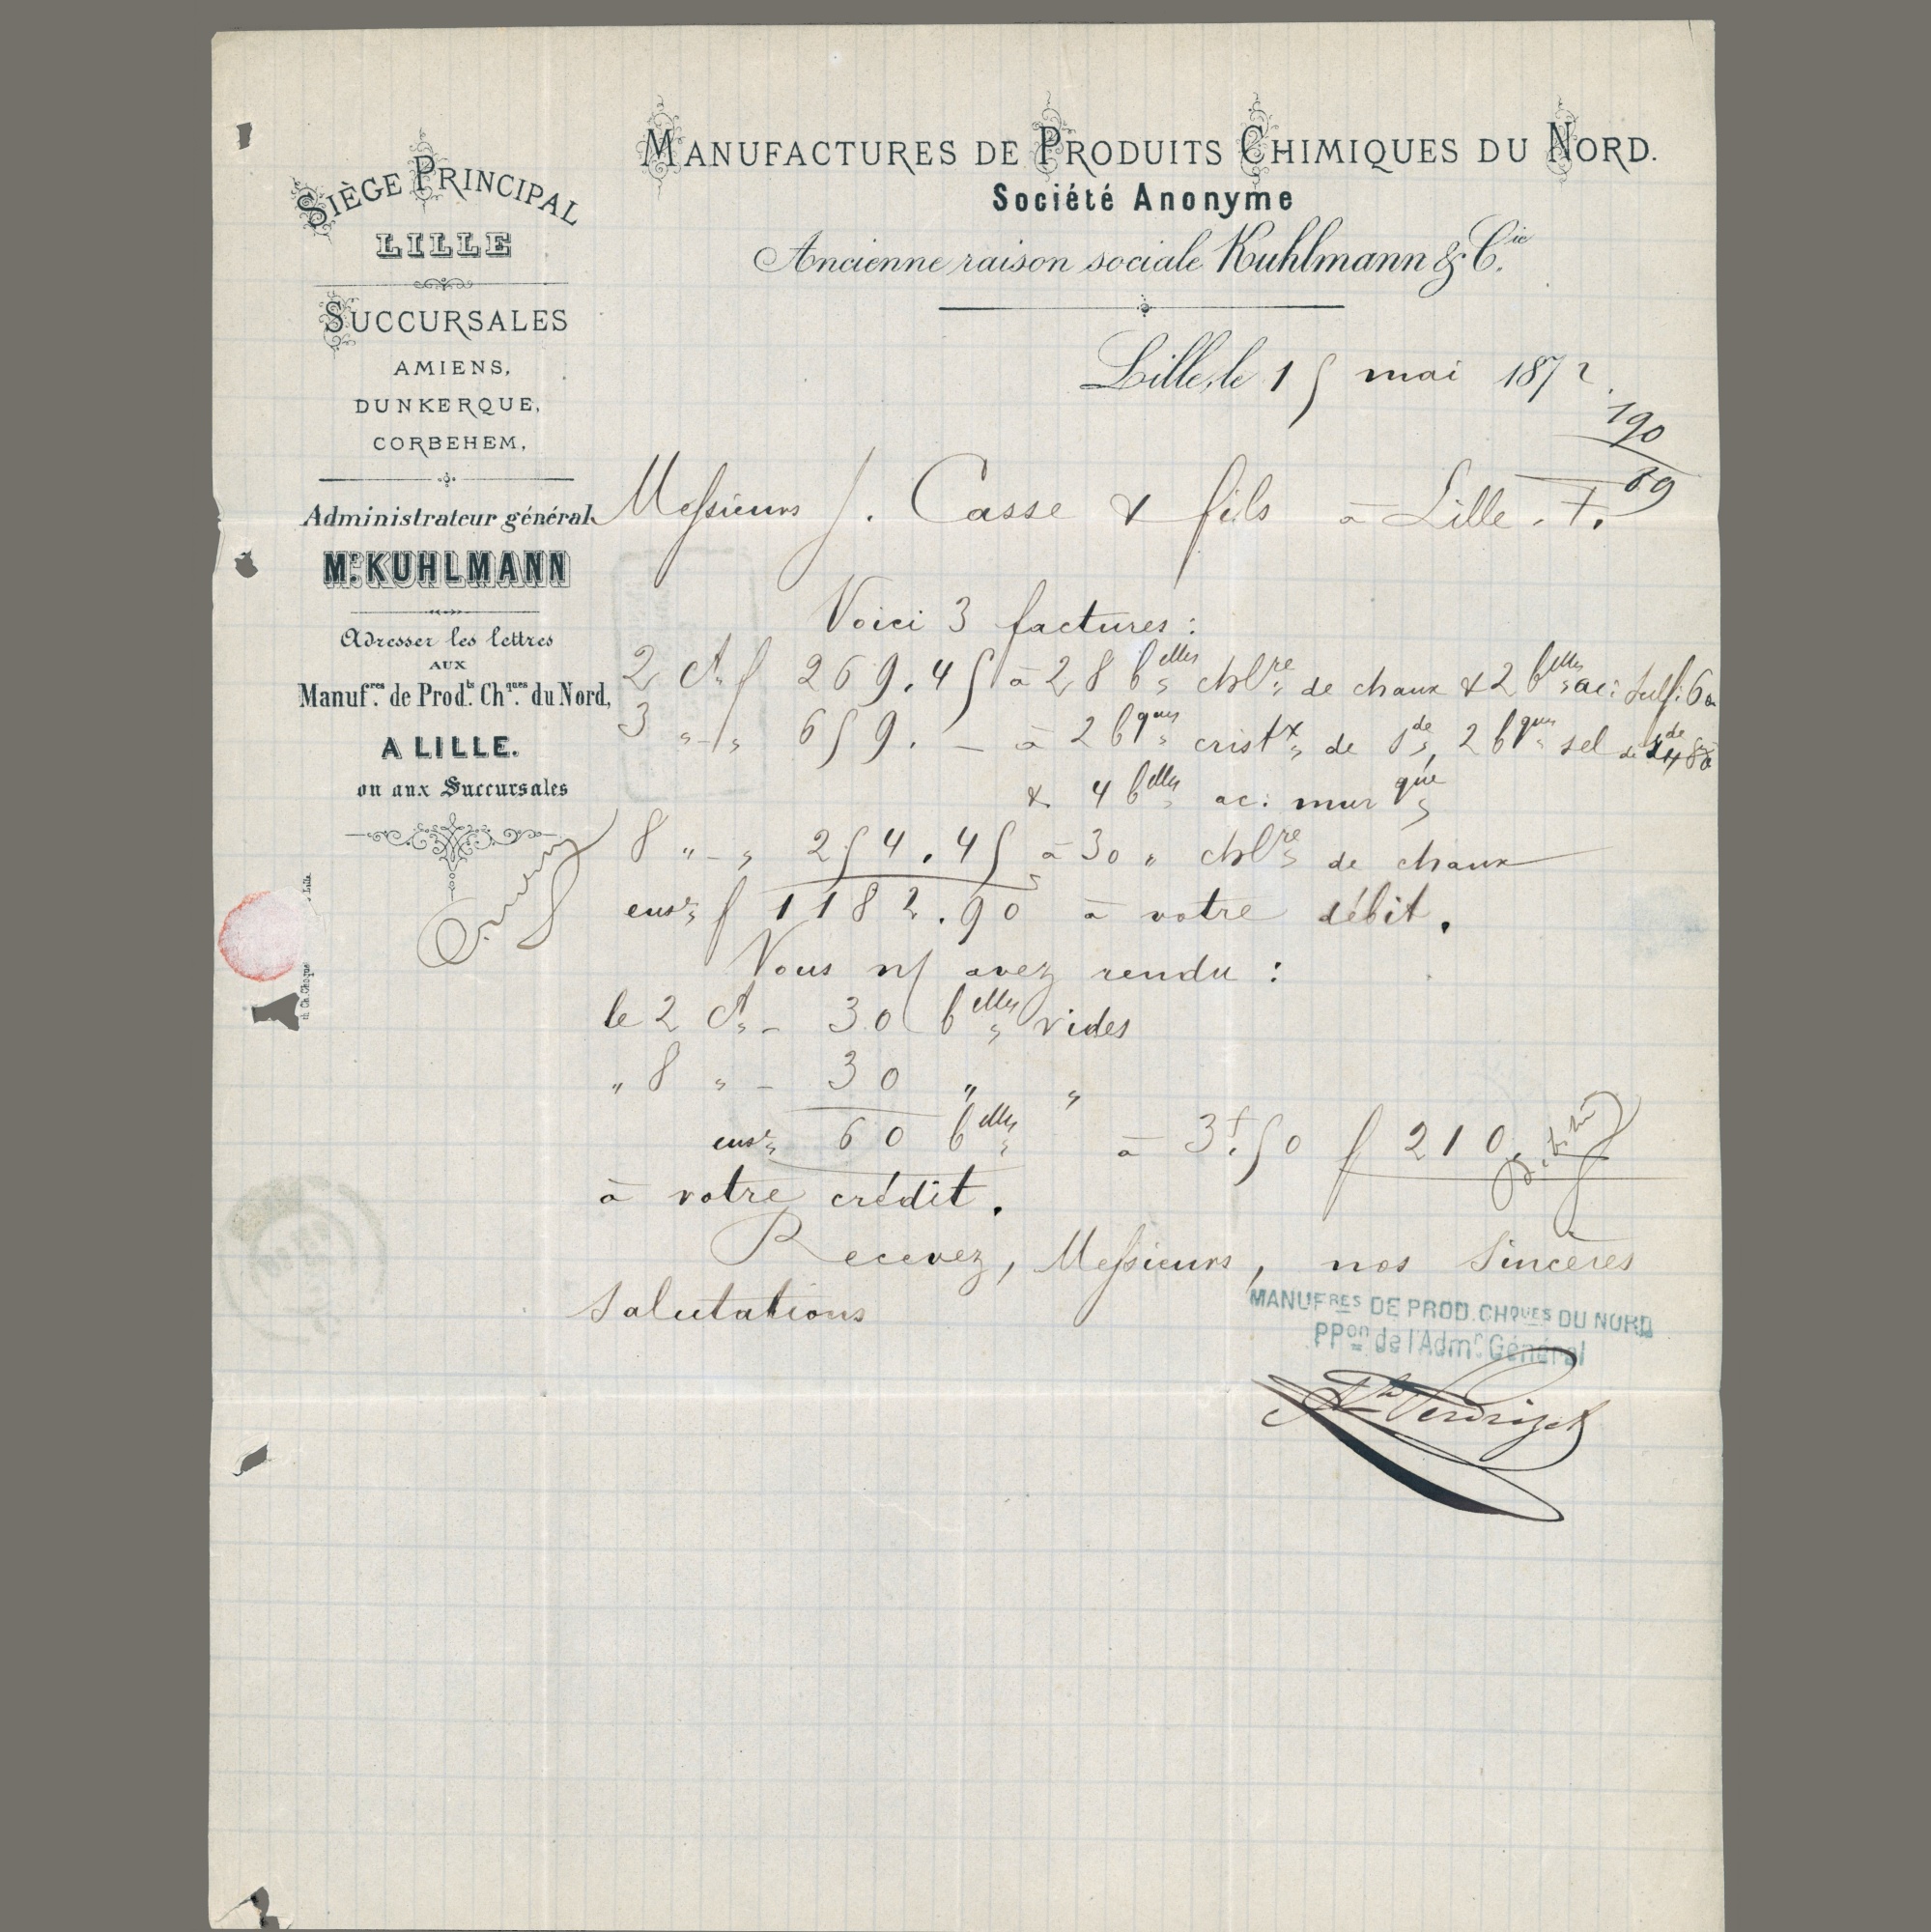 SIÈGE PRINCIPAL
LILLE
SUCCURSALES
AMIENS,
DUNKERQUE,
CORBEHEM,
Administrateur général
Mr. KUHLMANN
Adresser les lettres
AUX
Manuf.res de Prod.ts Ch.ques du Nord,
A LILLE.
ou aux Succursales
MANUFACTURES DE PRODUITS CHIMIQUES DU NORD.
Société Anonyme
Ancienne raison sociale Kuhlmann & Cie.
Lille, le 15 mai 1872.
190
89
Messieurs J. Casse & fils à Lille.
Voici 3 factures :
2 ct f 269.45 à 28 belles chlre de chaux & 2 belles ac: sulf: 60
3 " - " 659. - à 2 bques cristx de sde, 2 bques sel de sde
& 4 belles ac: murque
8 " - " 254.45 à 30 " chlre de chaux
ense f 1182.90 à votre débit.
Vous n/ avez rendu :
le 2 ct - 30 belles vides
" 8 " - 30 " "
ense 60 belles à 3f.50 f 210.
à votre crédit.
Recevez, Messieurs, nos sincères
salutations
MANUFRES DE PROD. CHQUES DU NORD
PPon de l'Admr Général